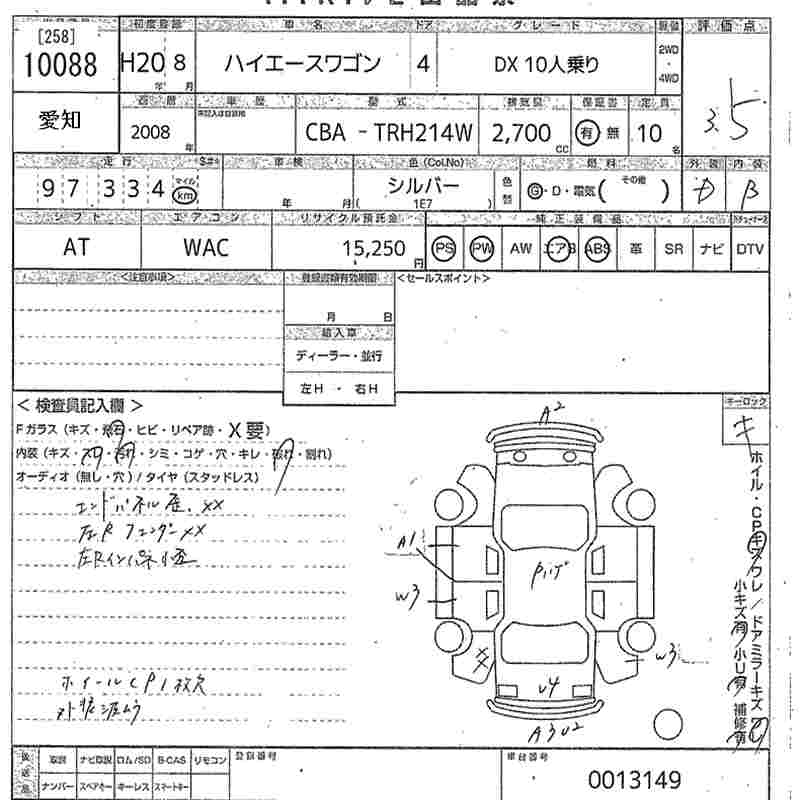 [258]
10088
初度登録
車名
ドア
グレード
評価点
H20 8
年 月
ハイエースワゴン
4
DX 10人乗り
2WD
・
4WD
3.5
愛知
車歴
型式
排気量
保証書
定員
2008 年
CBA - TRH214W
2,700 CC
有 無
10 名
走行
車検
色(Col.No)
燃料
外装
内装
97 334
マイル
km
年 月
シルバー
( 1E7
色替
G・D・電気( その他 )
B
シフト
エアコン
リサイクル預託金
純正装備品
AT
WAC
15,250 円
PS PW AW エアB ABS 革 SR ナビ DTV
<注意事項>
<セールスポイント>
月 日
輸入車
ディーラー・並行
左H ・ 右H
< 検査員記入欄 >
キーロック
キ
Fガラス(キズ・飛石・ヒビ・リペア跡・X要)
内装(キズ・スリ・汚れ・シミ・コゲ・穴・キレ・破れ・割れ)
オーディオ(無し・穴)/タイヤ(スタッドレス)
XX
左R フェンダーXX
ホイールCP1枚欠
A2
A1
W3
XX
W3
U4
A3U2
ホイル・CPキズワレ/ドアミラーキズ
小キズ有 小U有 補修有
取説 ナビ取説 ロム/SD B-CAS リモコン
ナンバー スペアキー キーレス スマートキー
登録番号
車台番号
0013149